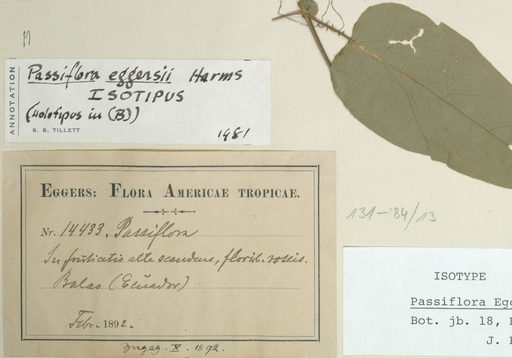 ANNOTATION
Passiflora eggersii Harms
ISOTIPUS
(Holotipus in (B))
S. S. TILLETT
1981
EGGERS: FLORA AMERICAE TROPICAE.
Nr. 14433. Passiflora
In fruticetis alte scandens, florib. roseis.
Balao (Ecuador)
Febr. 1892.
Ingeg. X. 1892.
131-'84/13
ISOTYPE
Passiflora Egg
Bot. jb. 18,
J.